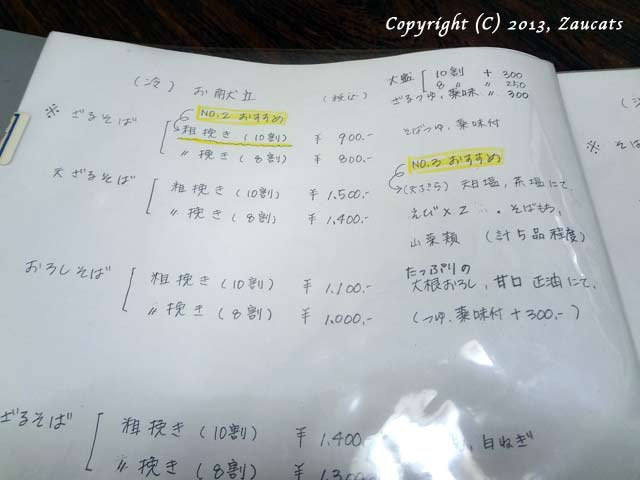 Copyright (C) 2013, Zaucats
(冷) お献立 (税込)
大盛 10割 + 300
8 〃 〃 250
ざるつゆ、薬味 〃 300
NO.2 おすすめ
※ ざるそば 粗挽き (10割) ¥ 900.- そばつゆ、薬味付
〃 挽き (8割) ¥ 800.-
NO.3 おすすめ
天ざるそば 粗挽き (10割) ¥ 1,500.- (天ぷら) 天日塩、茶塩にて、
〃 挽き (8割) ¥ 1,400.- えび×2 … そばもち、
山菜類 (計5品程度)
おろしそば 粗挽き (10割) ¥ 1,100.- たっぷりの
大根おろし、甘口 正油にて、
〃 挽き (8割) ¥ 1,000.- (つゆ、薬味付 +300.-)
ざるそば 粗挽き (10割) ¥ 1,400.- 、白ねぎ
〃 挽き (8割) ¥ 1,300.-
※ そば